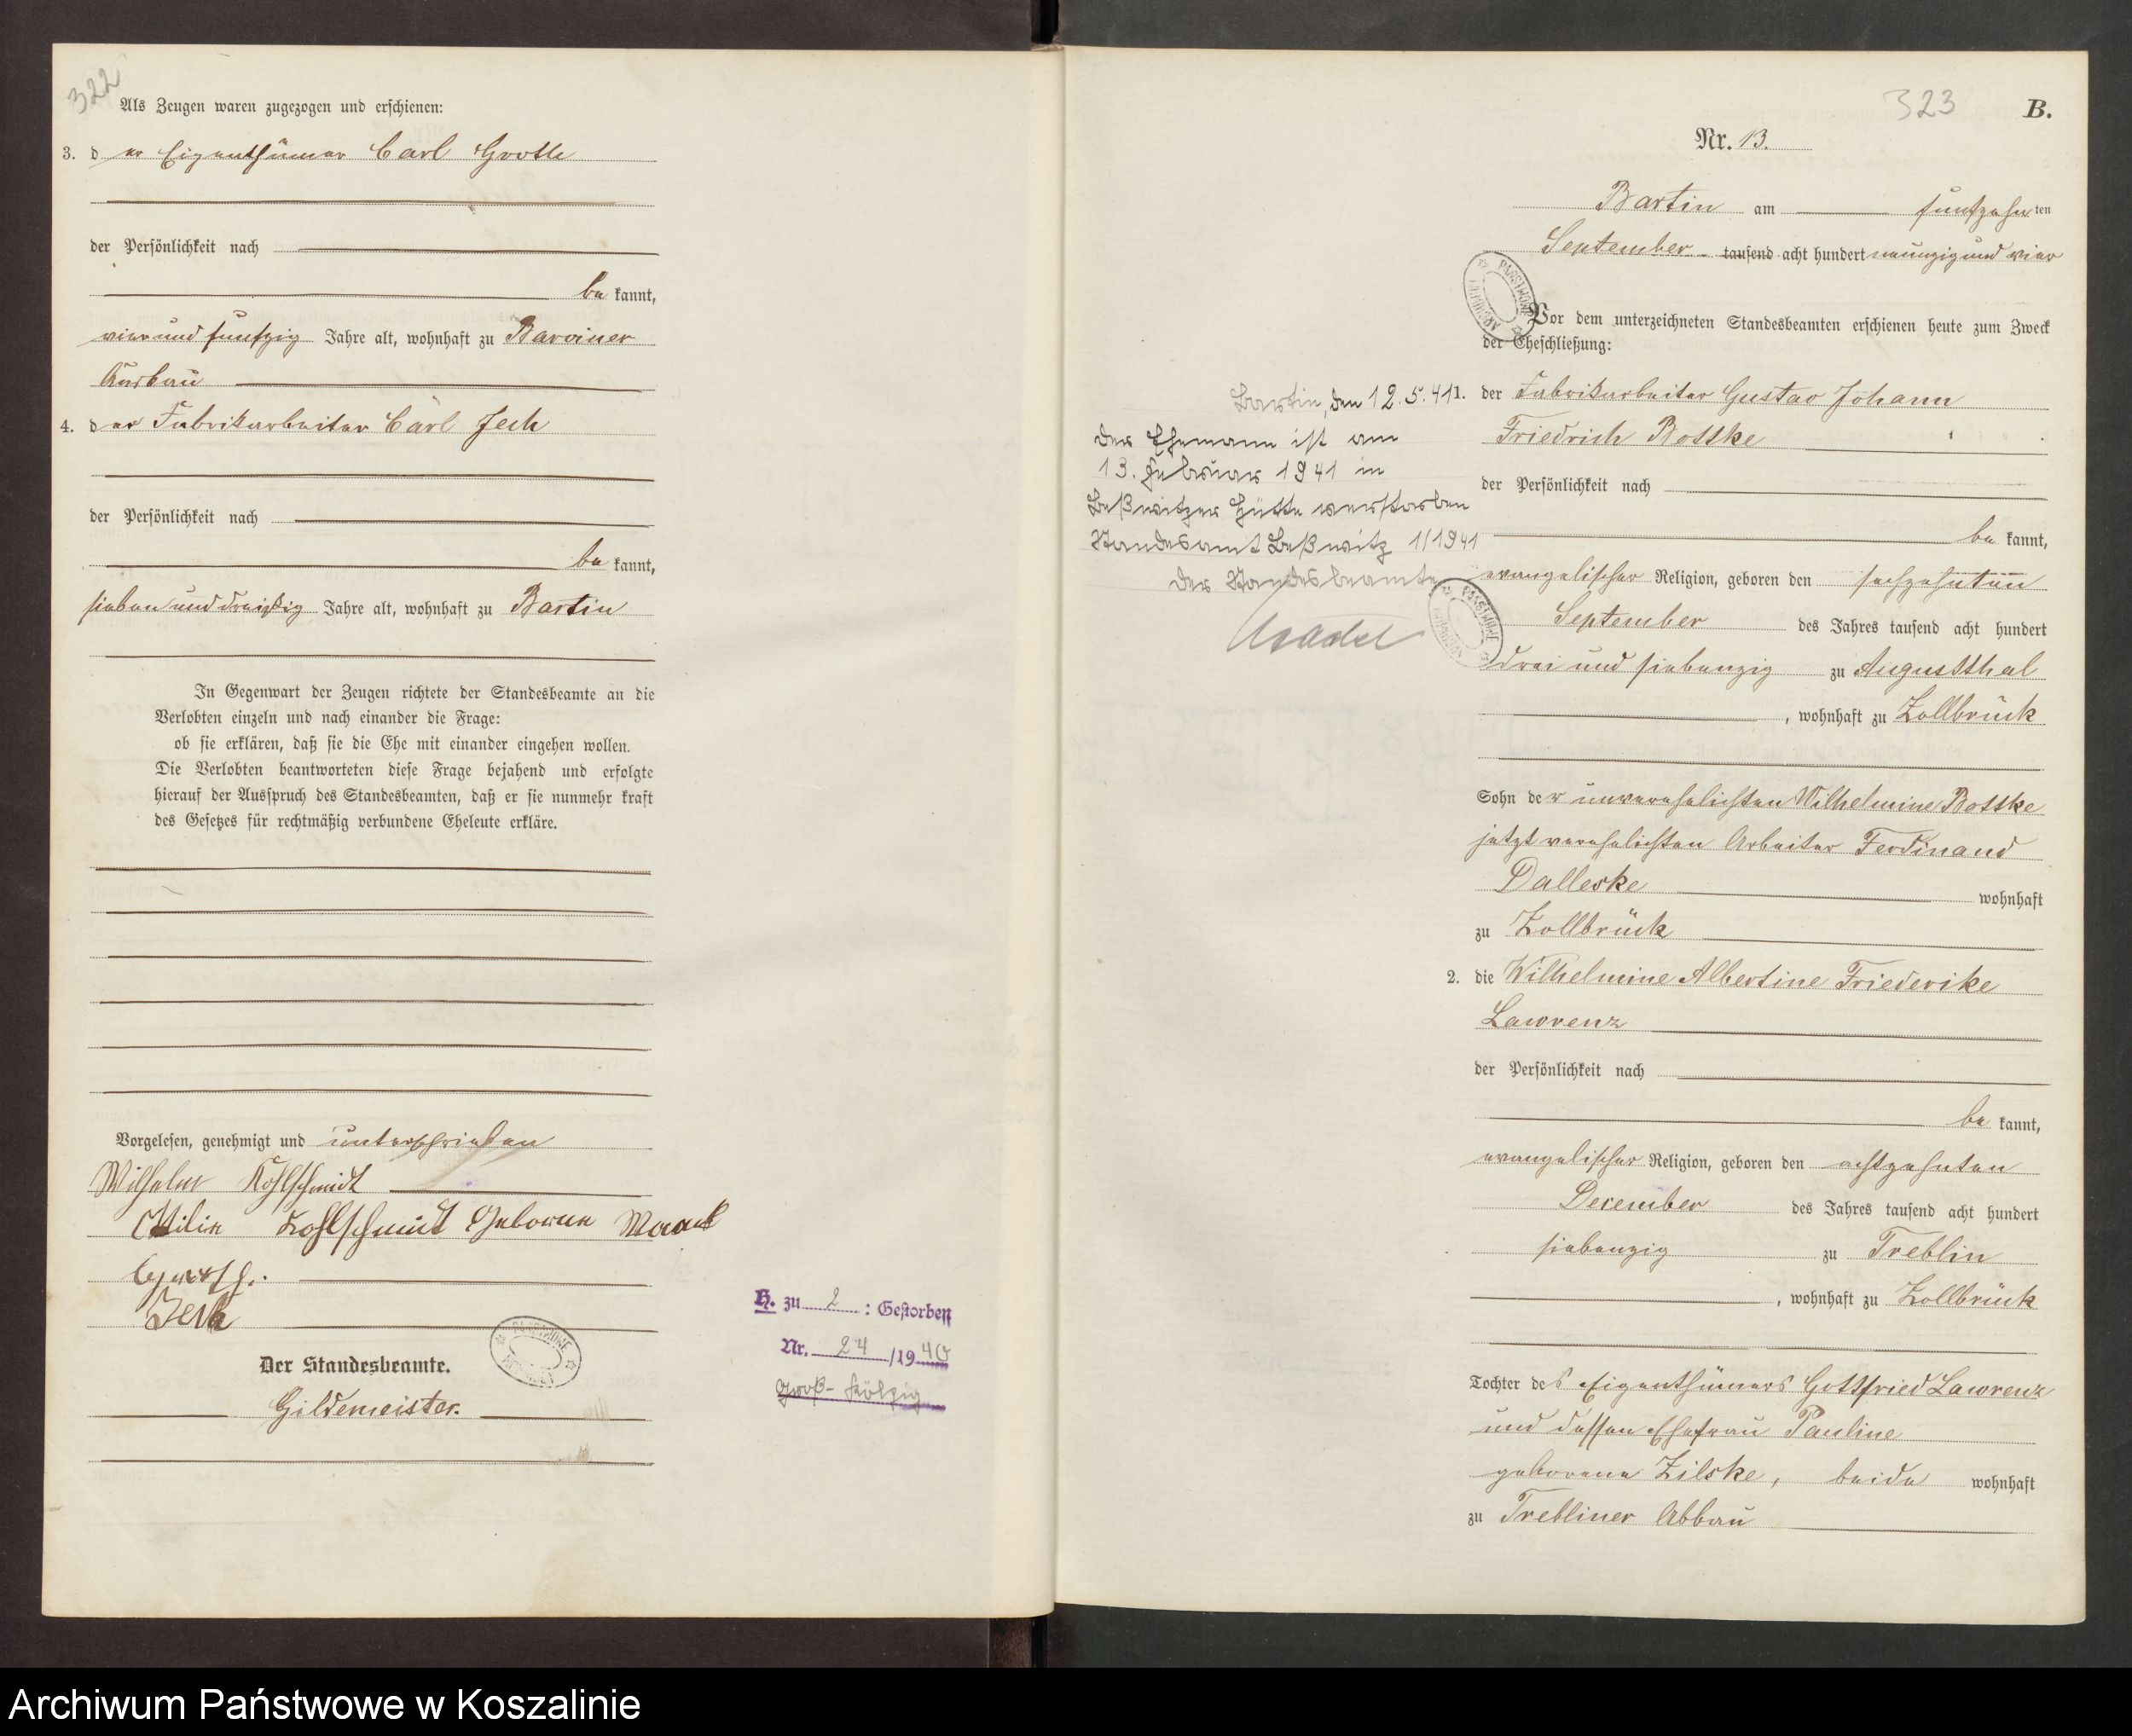 322
Als Zeugen waren zugezogen und erschienen:
3. der Eigenthümer Carl Groth
der Persönlichkeit nach
bekannt,
vierundfunfzig Jahre alt, wohnhaft zu Barviner
Ausbau
4. der Fabrikarbeiter Carl Jech
der Persönlichkeit nach
bekannt,
sieben und dreißig Jahre alt, wohnhaft zu Bartin
In Gegenwart der Zeugen richtete der Standesbeamte an die
Verlobten einzeln und nach einander die Frage:
ob sie erklären, daß sie die Ehe mit einander eingehen wollen.
Die Verlobten beantworteten diese Frage bejahend und erfolgte
hierauf der Ausspruch des Standesbeamten, daß er sie nunmehr kraft
des Gesetzes für rechtmäßig verbundene Eheleute erkläre.
Vorgelesen, genehmigt und unterschrieben
Wilhelm Kohlschmidt
Ottilie Kohlschmidt Geborene
Jech
Der Standesbeamte.
Gildemeister.
H. zu 2 : Gestorben
Nr. 24 /1940
Groß-Kölzig
323
B.
Nr. 13.
Bartin am funfzehnten
September tausend acht hundert neunzig und vier
Vor dem unterzeichneten Standesbeamten erschienen heute zum Zweck
der Eheschließung:
1. der Fabrikarbeiter Gustav Johann
Friedrich Bottke
der Persönlichkeit nach
bekannt,
evangelischer Religion, geboren den sechzehnten
September des Jahres tausend acht hundert
drei und siebenzig zu Augustthal
, wohnhaft zu Zollbrück
Sohn der unverehelichten Wilhelmine Bottke
jetzt verehelichten Arbeiter Ferdinand
Dalleske wohnhaft
zu Zollbrück
2. die Wilhelmine Albertine Friederike
Lawrenz
der Persönlichkeit nach
bekannt,
evangelischer Religion, geboren den achtzehnten
December des Jahres tausend acht hundert
siebenzig zu Treblin
, wohnhaft zu Zollbrück
Tochter des Eigenthümers Gottfried Lawrenz
und dessen Ehefrau Pauline
geborene Zilske, beide wohnhaft
zu Trebliner Abbau
Bartin, den 12.5.41
Der Ehemann ist am
13. Februar 1941 in
Beßwitzer Hütte verstorben
Standesamt Beßwitz 1/1941
Der Standesbeamte
Archiwum Państwowe w Koszalinie